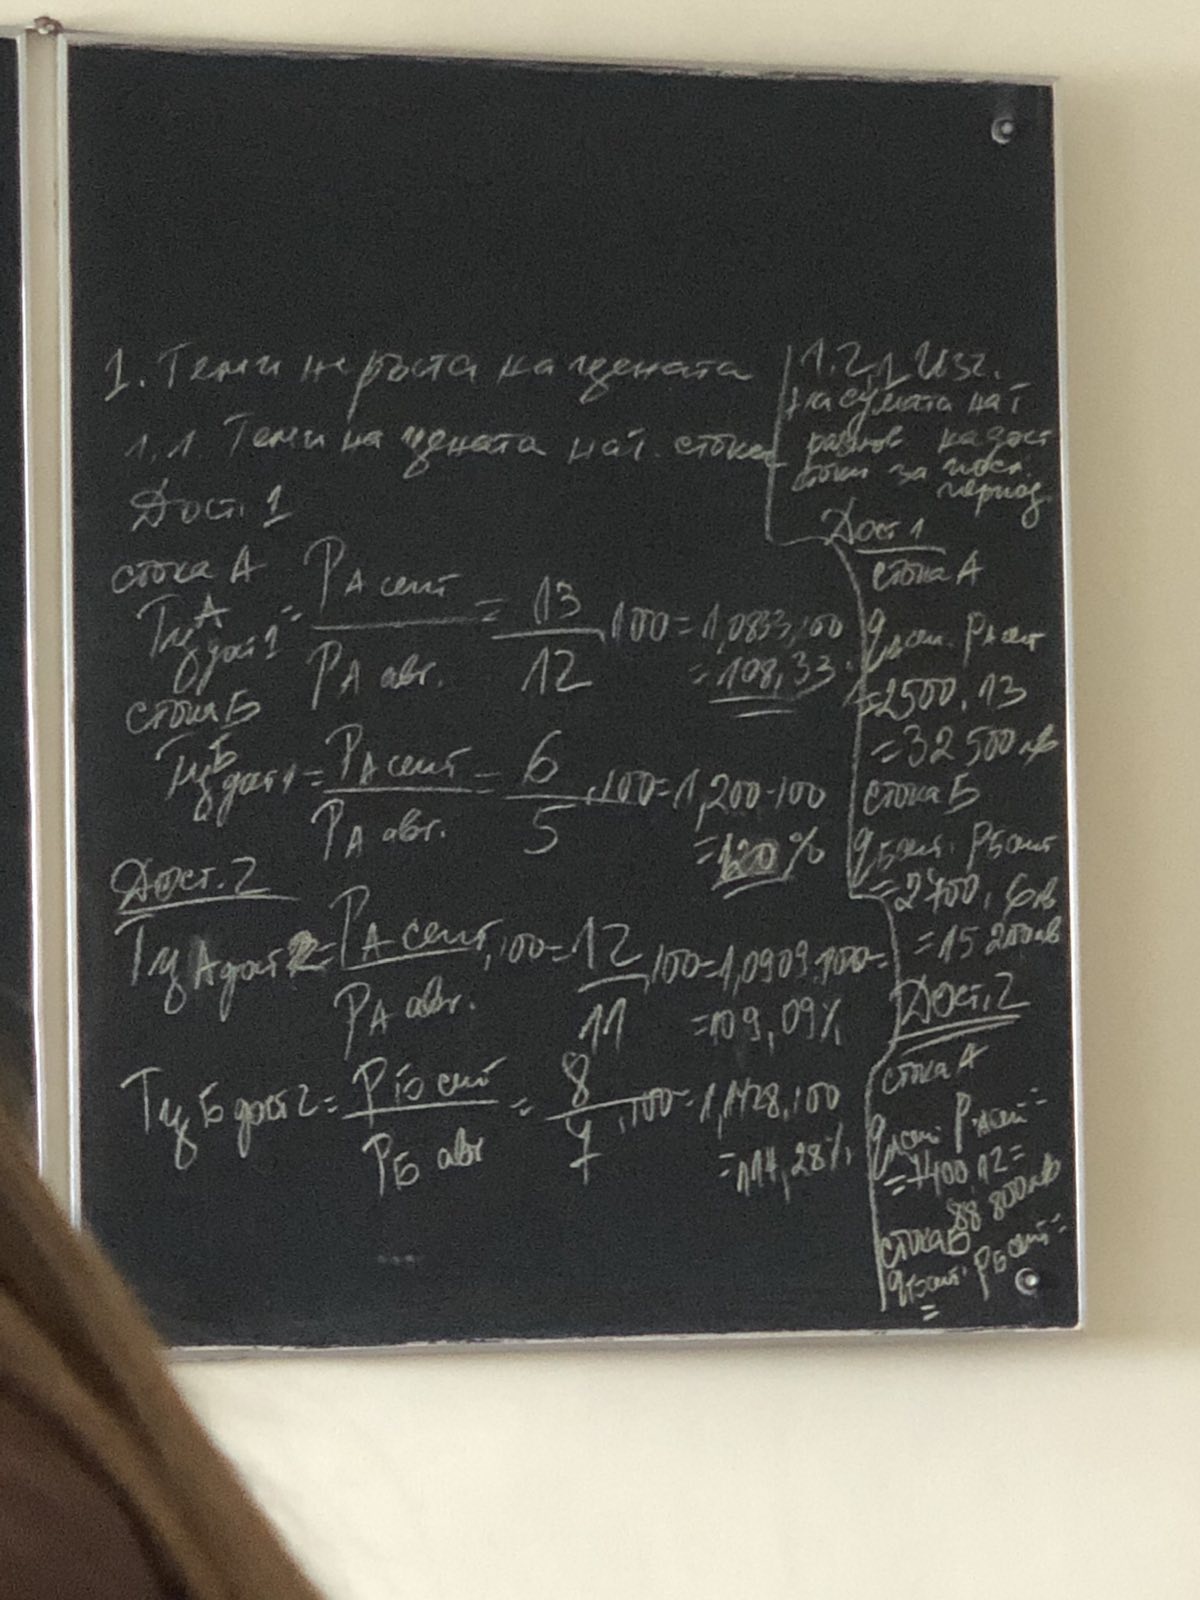 1. Темп на ръста на цената
1.1. Темп на цената на 1. стока
Дост. 1
стока А
Тц А дост 1 = РА септ / РА авг. = 13 / 12 . 100 = 1,0833.100
= 108,33.
стока Б
Тц Б дост 1 = РА септ / РА авг. = 6 / 5 . 100 = 1,200.100
= 120 %
Дост. 2
Тц А дост 2 = РА септ / РА авг. . 100 = 12 / 11 . 100 = 1,0909.100 =
= 109,09%
Тц Б дост 2 = РБ септ / РБ авг = 8 / 7 . 100 = 1,1428.100
= 114,28%
1.2.1 Изч.
на сумата на 1
стоки за посл.
период
Дост 1
стока А
qА септ. РА септ
= 2500.13
= 32 500 лв
стока Б
qБ септ. РБ септ
= 2700.6 лв
= 15 200 лв
Дост. 2
стока А
qА септ. РА септ =
= 7400.12 =
88 800 лв
стока Б
qБ септ. РБ септ =
=